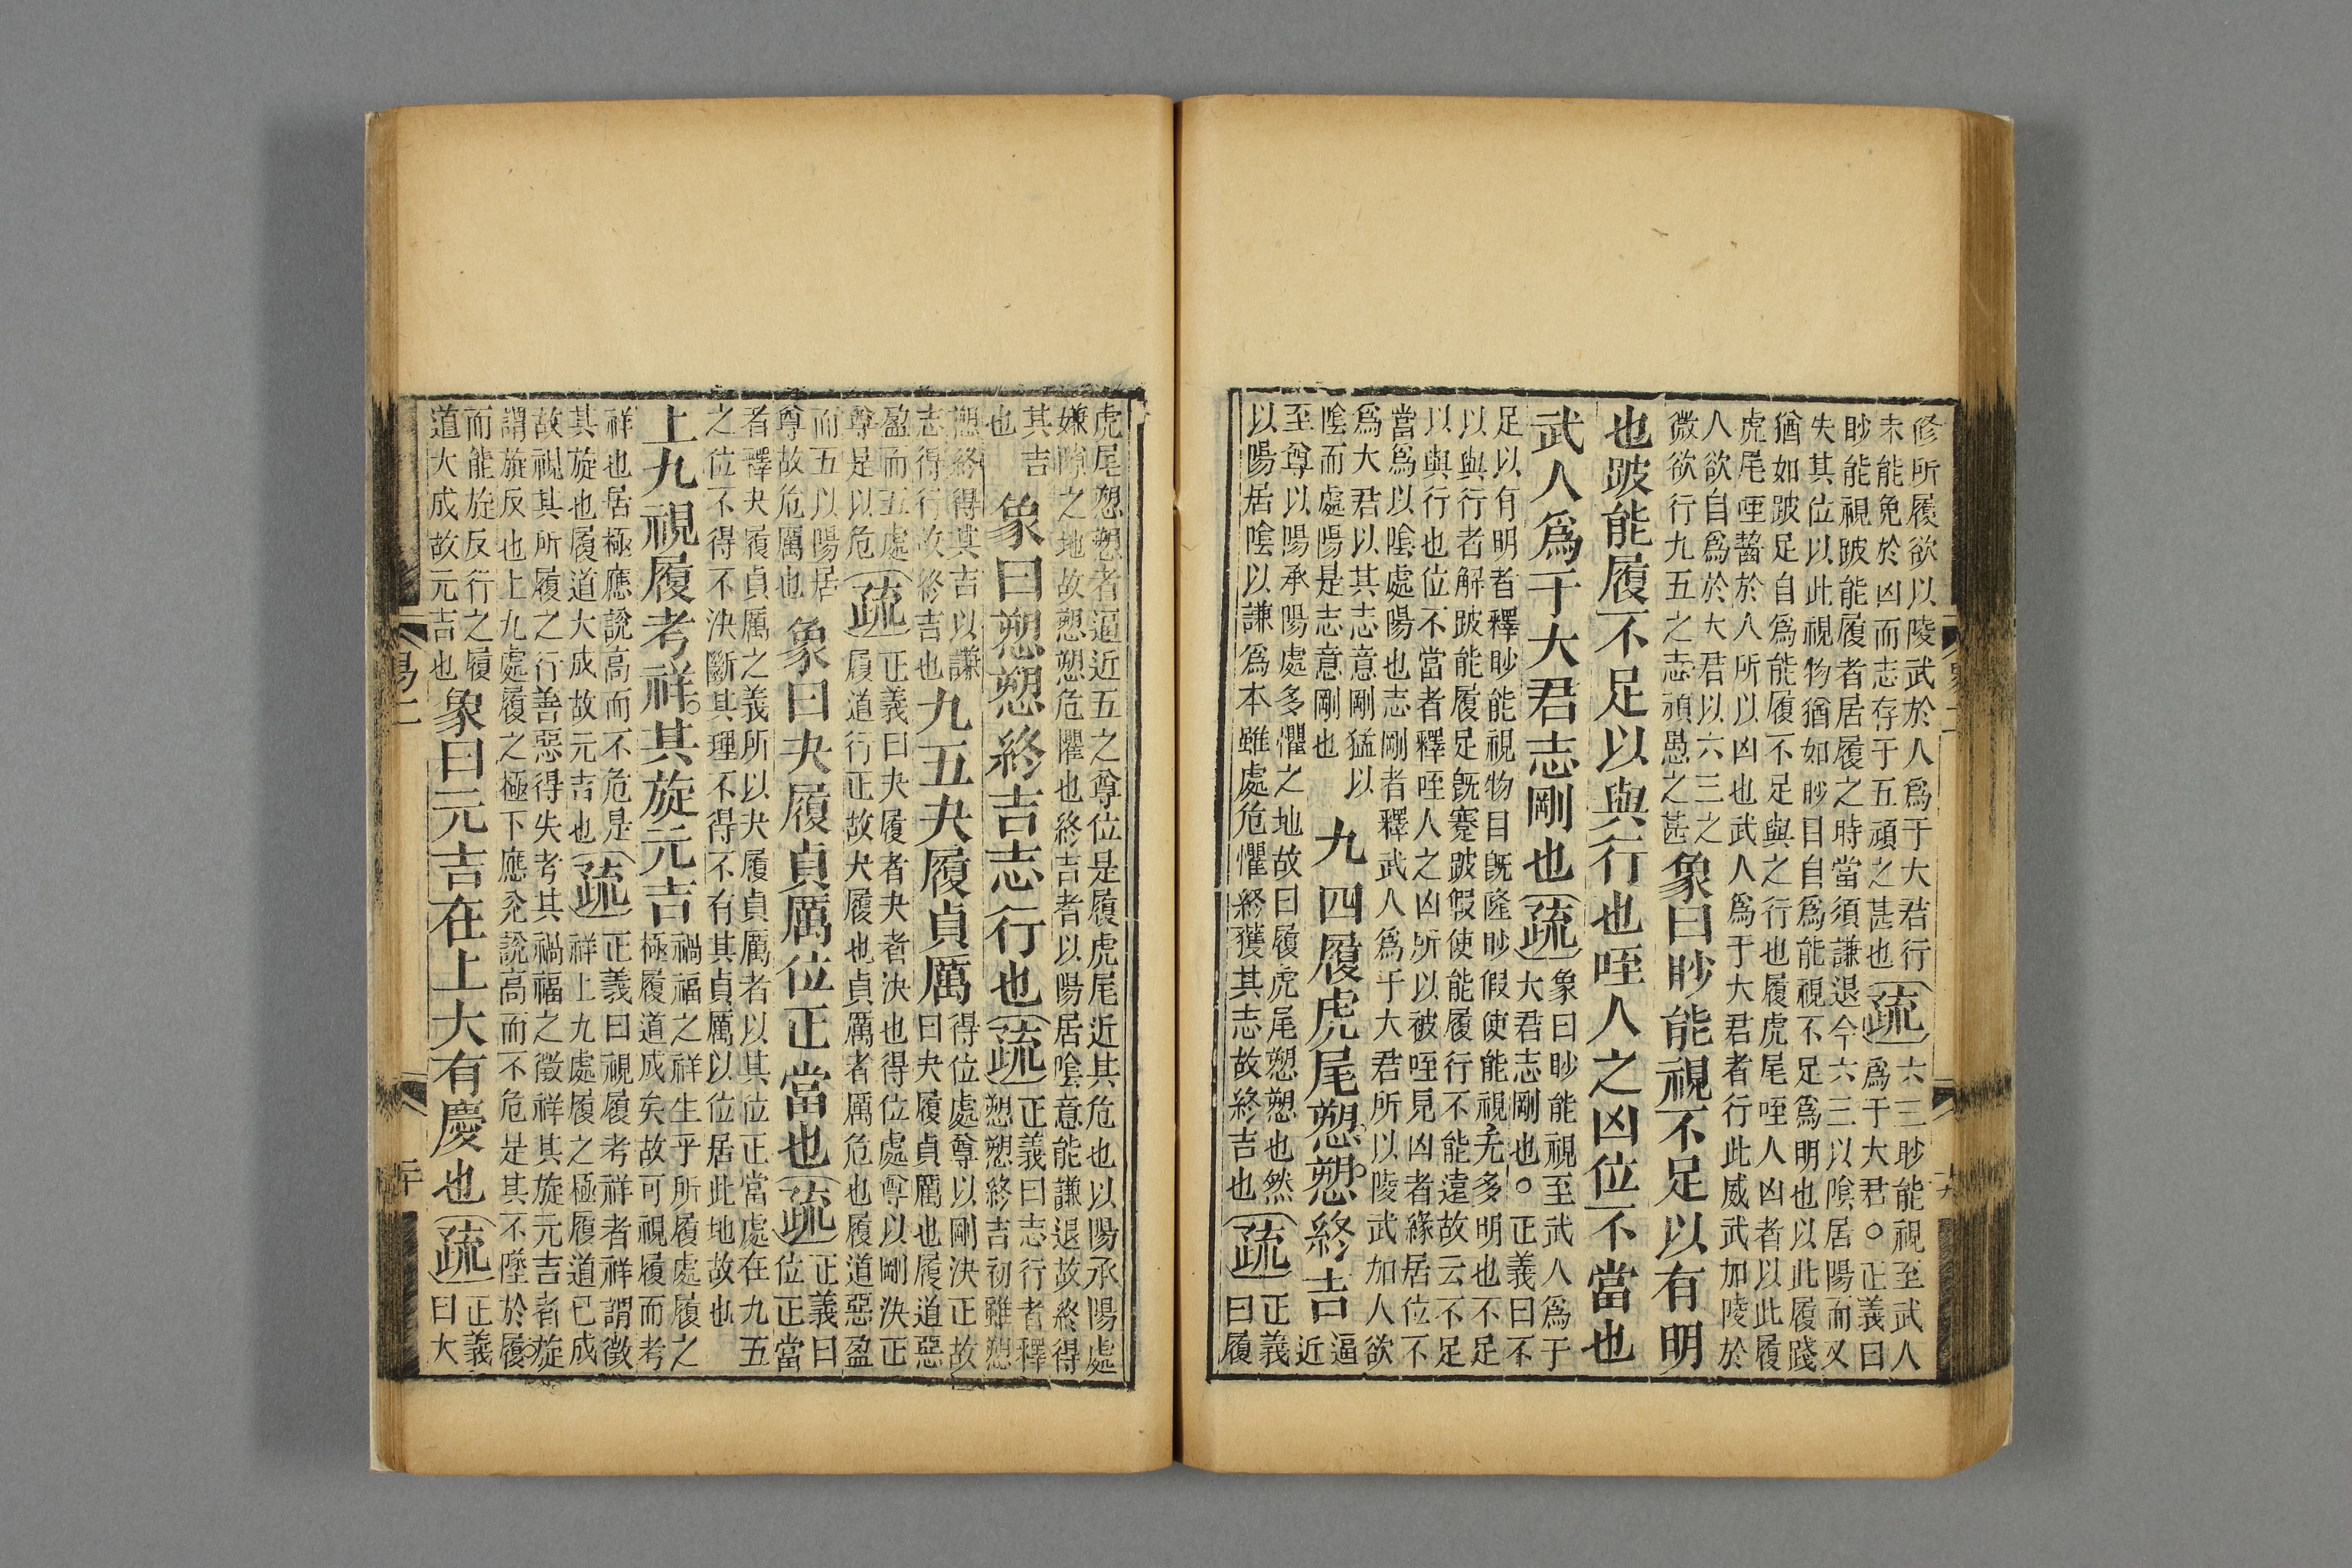 修所履欲以陵武於人爲于大君行
未能免於凶而志存于五頑之甚也
疏
六三眇能視至武人
爲于大君○正義曰
眇能視跛能履者居履之時當須謙退今六三以隂居陽而又
失其位以此視物猶如眇目自爲能視不足爲明也以此履踐
猶如跛足自爲能履不足與之行也履虎尾咥人凶者以此履
虎尾咥齧於人所以凶也武人爲于大君者行此威武加陵於
人欲自爲於大君以六三之
微欲行九五之志頑愚之甚
象曰眇能視不足以有明
也跛能履不足以與行也咥人之凶位不當也
武人爲于大君志剛也疏
象曰眇能視至武人爲于
大君志剛也○正義曰不
足以有明者釋眇能視物目旣隆眇假使能視无多明也不足
以與行者解跛能履足旣蹇跛假使能履行不能遠故云不足
以與行也位不當者釋咥人之凶所以被咥見凶者緣居位不
當爲以隂處陽也志剛者釋武人爲于大君所以陵武加人欲
爲大君以其志意剛猛以
隂而處陽是志意剛也
九四履虎尾愬愬終吉
逼
近
至尊以陽承陽處多懼之地故曰履虎尾愬愬也然
以陽居隂以謙爲本雖處危懼終獲其志故終吉也
疏
正義
曰履
虎尾愬愬者逼近五之尊位是履虎尾近其危也以陽承陽處
嫌隙之地故愬愬危懼也終吉者以陽居隂意能謙退故終得
其吉
也
象曰愬愬終吉志行也疏
正義曰志行者釋
愬愬終吉初雖愬
愬終得其吉以謙
志得行故終吉也
九五夬履貞厲
得位處尊以剛決正故
曰夬履貞厲也履道惡
盈而五處
尊是以危
疏
正義曰夬履者夬者決也得位處尊以剛決正
履道行正故夬履也貞厲者厲危也履道惡盈
而五以陽居
尊故危厲也
象曰夬履貞厲位正當也疏
正義曰
位正當
者釋夬履貞厲之義所以夬履貞厲者以其位正當處在九五
之位不得不決斷其理不得不有其貞厲以位居此地故也
上九視履考祥其旋元吉
禍福之祥生乎所履處履之
極履道成矣故可視履而考
祥也居極應說高而不危是
其旋也履道大成故元吉也
疏
正義曰視履考祥者祥謂徵
祥上九處履之極履道已成
故視其所履之行善惡得失考其禍福之徵祥其旋元吉者旋
謂旋反也上九處履之極下應兊說高而不危是其不墜於履
而能旋反行之履
道大成故元吉也
象曰元吉在上大有慶也疏
正義
曰大
易二
二十